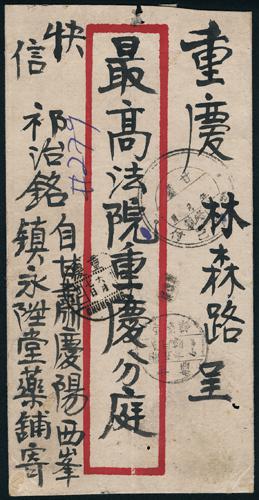 重慶林森路呈
最高法院重慶分庭
快信
祁治銘
自甘肅慶陽西峯
鎮永陞堂藥舖寄
#279